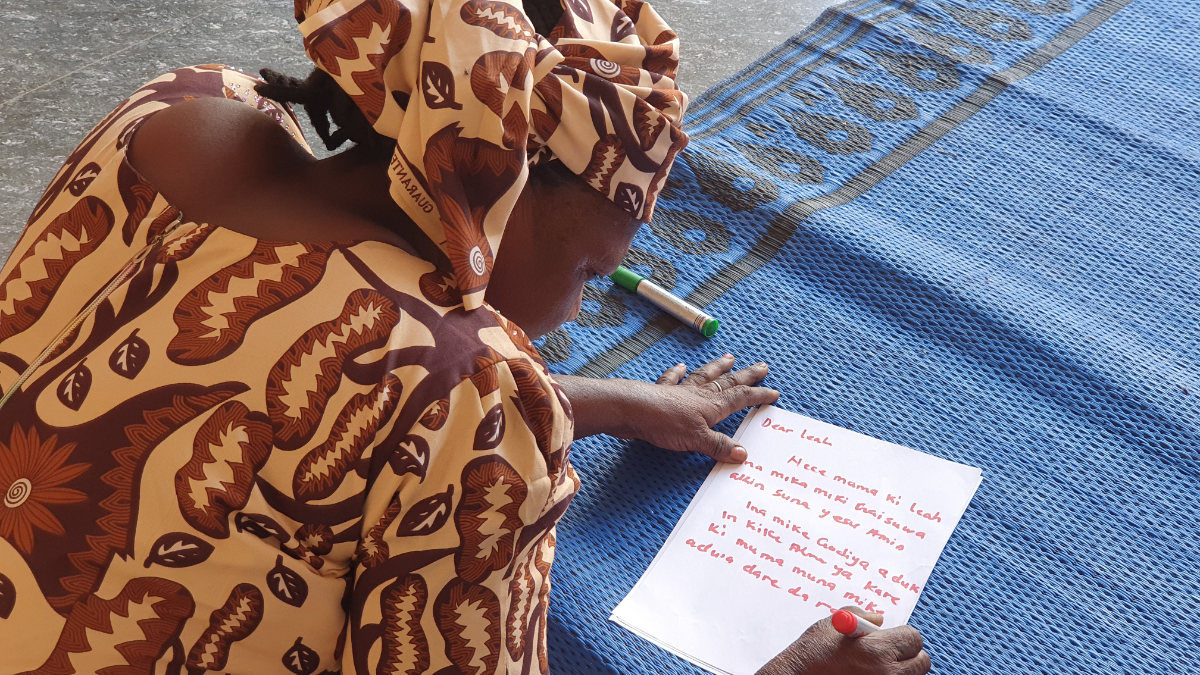 GUARANTE
Dear leah
Heee mama ki leah
ina mika miki Gaisuwa
alkin suna yesu Amin
Ina mike Godiya a duk
in kike Allan ya kare
ki muma muna mike
aduia dare da